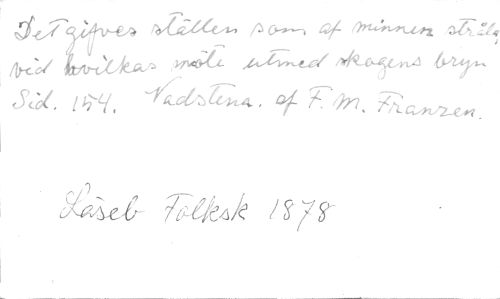 Det gifves ställen som af minnen stråla,
vid hvilkas möte utmed skogens bryn
Sid. 154. Vadstena. af F. M. Franzen.
Läseb Folksk 1878